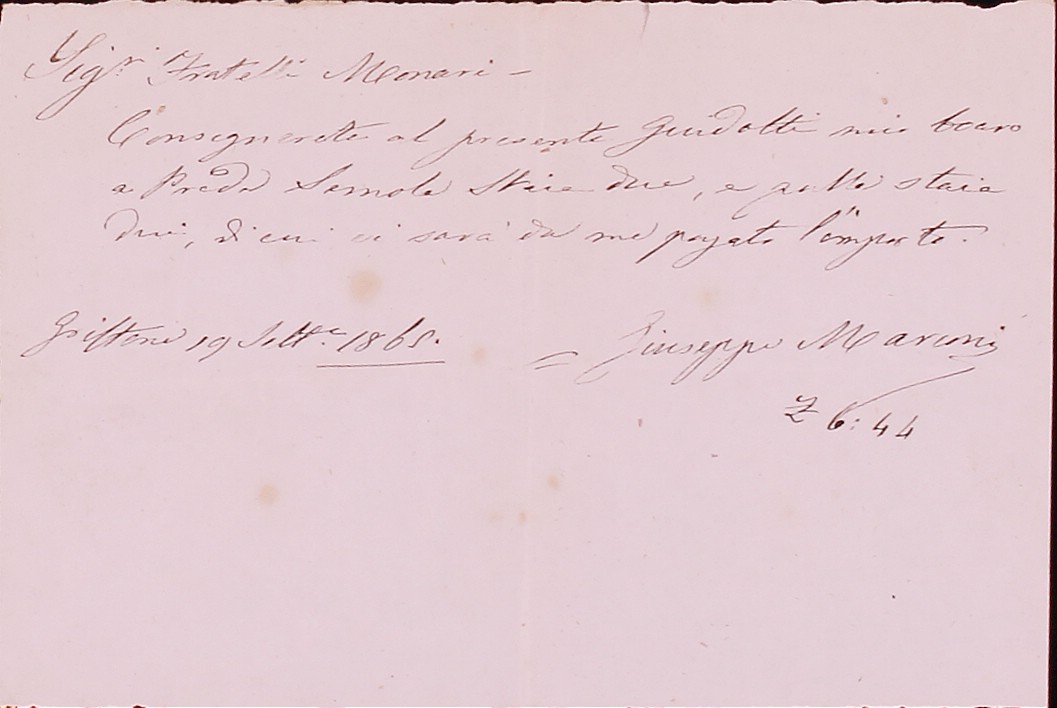 Sig.ri Fratelli Monari -
Consegnerete al presente Guidotti mio boaro
a Preda Semola Staia due, e gialla staia
due, di cui vi sarà da me pagato l'importo.
19 Sett.e 1865. = Giuseppe Marconi
6:44